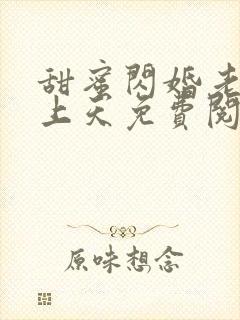 甜蜜閃婚老
上天免費閱
原味想念